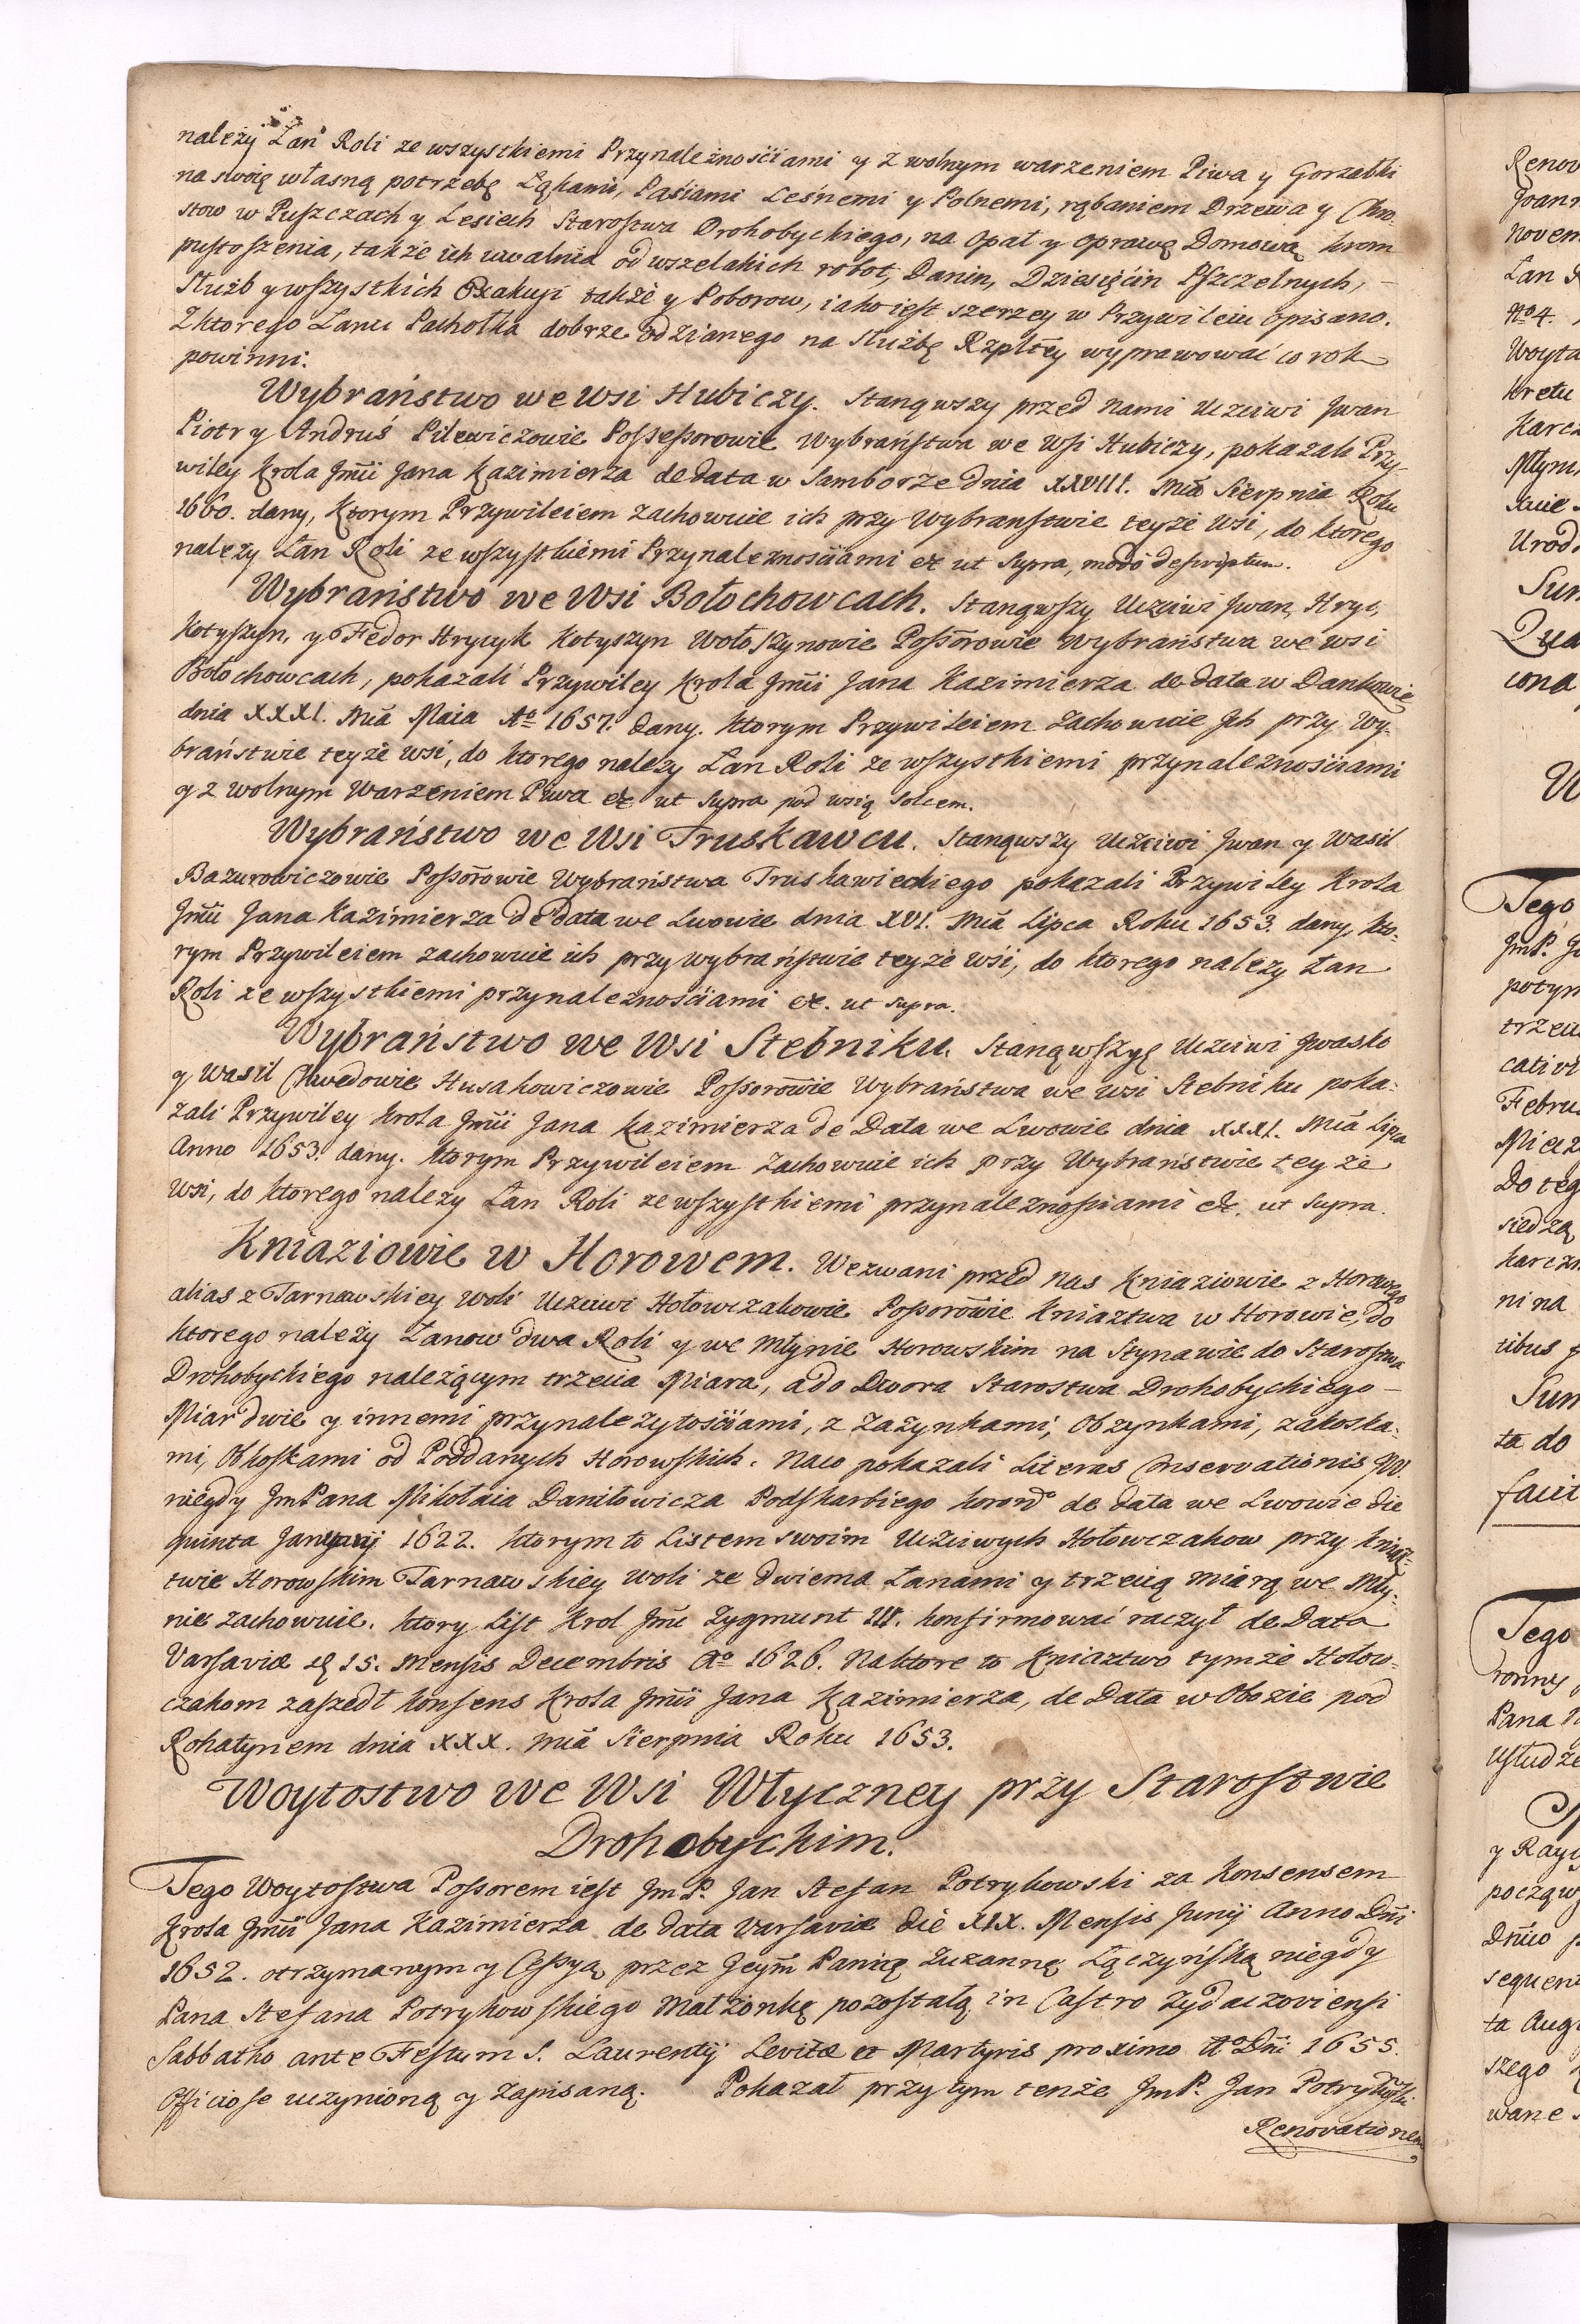 należy Łan Roli ze wszystkiemi Przynależnościami y z wolnym warzeniem Piwa y Gorzałki
na swoię własną potrzebę Łąkami, Paśiami Leśnemi y Polnemi, rąbaniem Drzewa y Chro-
stow w Puszczach y Lesiech Starostwa Drohobyckiego, na Opał y Oprawę Domową krom
pustoszenia, także ich uwalnia od wszelakich robot, Danin, Dziesięćin Pszczelnych, -
Służb y wszystkich Exakcyi także y Poborow, iako iest szerzey w Przywileiu opisano.
Z ktorego Łanu Pachołka dobrze odzianego na służbę Rzpltey wyprawować co rok
powinni.
Wybraństwo we Wsi Hubiczy. Stanąwszy przed Nami Uczciwi Jwan
Piotr y Andruś Pilewiczowie Possessorowie Wybraństwa we Wsi Hubiczy, pokazali Przy-
wiley Krola Jmći Jana Kazimierza de data w Samborze dnia XXVIII. Mca Sierpnia Roku
1660. dany, Ktorym Przywileiem zachowuie ich przy Wybranstwie teyże Wsi, do ktorego
należy Łan Roli ze wszystkiemi Przynaleznościami &c ut Supra, modo descriptum.
Wybraństwo we Wsi Bołochowcach. Stanąwszy Uczciwi Jwan, Hryc,
Kotyszyn, y Fedor Hrycyk Kotyszyn Wołoszynowie Possorowie Wybraństwa we wsi
Bołochowcach, pokazali Przywiley Krola Jmći Jana Kazimierza de data w Dankowie
dnia XXXI. Mca Maia Ao 1657. dany. Ktorym Przywileiem Zachowuie Jch przy Wy-
braństwie teyże wsi, do ktorego nalezy Łan Roli ze wszystkiemi przynaleznościami
y z wolnym Warzeniem Piwa &c ut Supra pod wsią Solcem.
Wybraństwo we Wsi Truskawcu. Stanąwszy Uczciwi Jwan y Wasil
Bazurowiczowie Possorowie Wybraństwa Truskawieckiego pokazali Przywiley Krola
Jmći Jana Kazimierza de data we Lwowie dnia XVI. Mca Lipca Roku 1653. dany, kto-
rym Przywileiem zachowuie ich przy wybraństwie teyże wśi, do ktorego nalezy Łan
Roli ze wszystkiemi przynaleznościami &c. ut supra.
Wybraństwo we Wsi Stebniku. Stanąwszyę Uczciwi Jwasko
y Wasil Chwedowie Husakowiczowie Possorowie Wybraństwa we wsi Stebniku poka-
zali Przywiley Krola Jmći Jana Kazimierza de Data we Lwowie dnia XXXI. Mca Lipca
Anno 1653. dany. Ktorym Przywileiem Zachowuie ich przy Wybraństwie teyże
Wsi, do ktorego nalezy Łan Roli ze wszystkiemi przynaleznosciami &c. ut Supra.
Kniaziowie w Horowem. Wezwani przed nas Kniaziowie z Horowego
alias z Tarnawskiey Woli Uczciwi Hołowczakowie Possorowie Kniaztwa w Horowie, do
ktorego należy Łanow dwa Roli y we Młynie Horowskim na Stynawie do Starostwa
Drohobyckiego należącym trzecia Miara, a do Dwora Starostwa Drohobyckiego -
Miar dwie y innemi przynalezytościami, z Zażynkami, Obzynkami, zakoska-
mi, Obkoskami od Poddanych Horowskich. Naco pokazali Literas Conservationis JW.
niegdy JmPana Mikołaia Daniłowicza Podskarbiego Koron° de data we Lwowie die
quinta January 1622. ktorym to Listem swoim Uczciwych Hołowczakow przy Kniaz-
twie Horowskim Tarnawskiey Woli ze dwiema Łanami y trzecią miarą we Mły-
nie zachowuie. Ktory List Krol Jmć Zygmunt III. konfirmować raczył de Data
Varsaviæ d 15. Mensis Decembris Ao 1626. Naktore to Kniaztwo tymże Hołow-
czakom zaszedł Konsens Krola Jmći Jana Kazimierza, de Data w Obozie pod
Rohatynem dnia XXX. Mca Sierpnia Roku 1653.
Woytostwo we Wsi Włyczney przy Starostwie
Drohobyckim.
Tego Woytostwa Possorem iest JmP. Jan Stefan Potrykowski za Konsensem
Krola Jmći Jana Kazimierza de data Varsaviæ die XIX. Mensis Junij Anno Dni
1652. otrzymanym y Cessyą przez Jeym Panią Zuzannę Łączyńską niegdy
Pana Stefana Potrykowskiego Małżonkę pozostałą in Castro Zydaczoviensi
Sabbatho ante Festum S. Laurentij Levitæ et Martyris proximo Ao Dni 1655.
Officiose uczynioną y zapisaną. Pokazał przytym tenże JmP. Jan Potrykowski
Renovationem